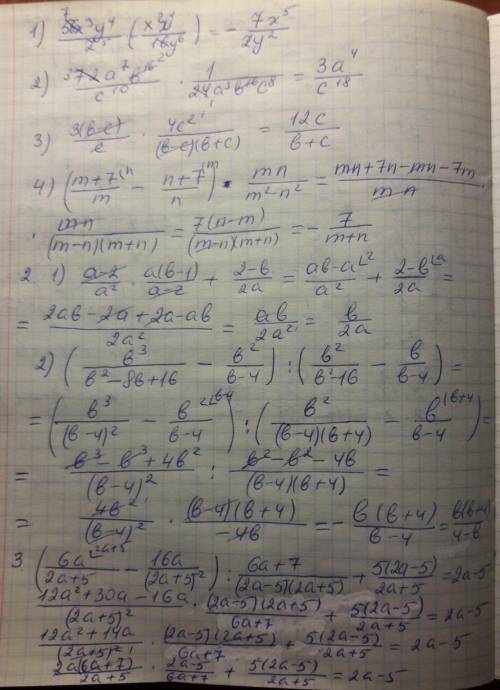 1) 56x³y⁴/z⁵ · (x²z⁴/16y⁶) = - 7x⁵/2y²
2) 72a⁷b¹⁶/c¹⁰ · 1/24a³b¹⁶c⁸ = 3a⁴/c¹⁸
3) 3(в-с)/с · 4с²/(в-с)(в+с) = 12с/в+с
4) (m+7/m - n+7/n) · mn/m²-n² = mn+7n-mn-7m/mn ·
· mn/(m-n)(m+n) = 7(n-m)/(m-n)(m+n) = - 7/m+n
2. 1) a-2/a² · a(в-1)/a-2 + 2-в/2a = aв-a/a² + 2-в/2a =
= 2aв-2a+2a-aв/2a² = aв/2a² = в/2a
2) (в³/в²-8в+16 - в²/в-4) : (в²/в²-16 - в/в-4) =
= (в³/(в-4)² - в²/в-4) : (в²/(в-4)(в+4) - в/в-4) =
= в³-в³+4в²/(в-4)² : в²-в²-4в/(в-4)(в+4) =
= 4в²/(в-4)² · (в-4)(в+4)/-4в = - в(в+4)/в-4 = в(в+4)/4-в
3. (6a/2a+5 - 16a/(2a+5)²) : 6a+7/(2a-5)(2a+5) + 5(2a-5)/2a+5 = 2a-5
12a²+30a-16a/(2a+5)² · (2a-5)(2a+5)/6a+7 + 5(2a-5)/2a+5 = 2a-5
12a²+14a/(2a+5)² · (2a-5)(2a+5)/6a+7 + 5(2a-5)/2a+5 = 2a-5
2a(6a+7)/2a+5 · 2a-5/6a+7 + 5(2a-5)/2a+5 = 2a-5